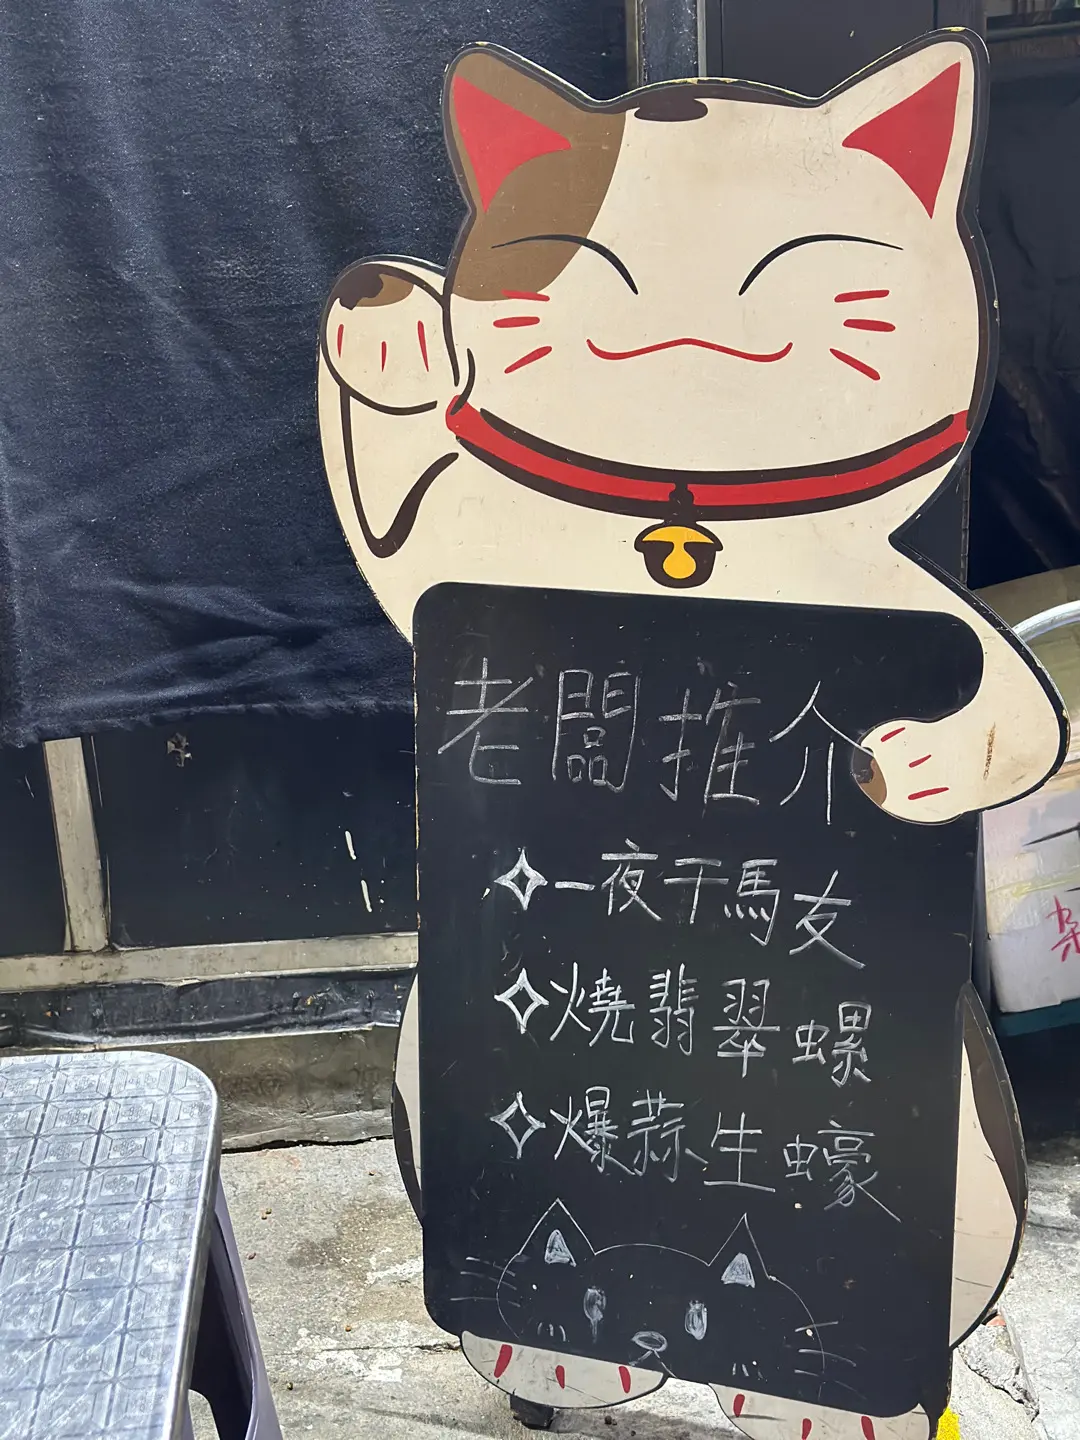 老闆推介
一夜干馬友
燒翡翠螺
爆蒜生蠔